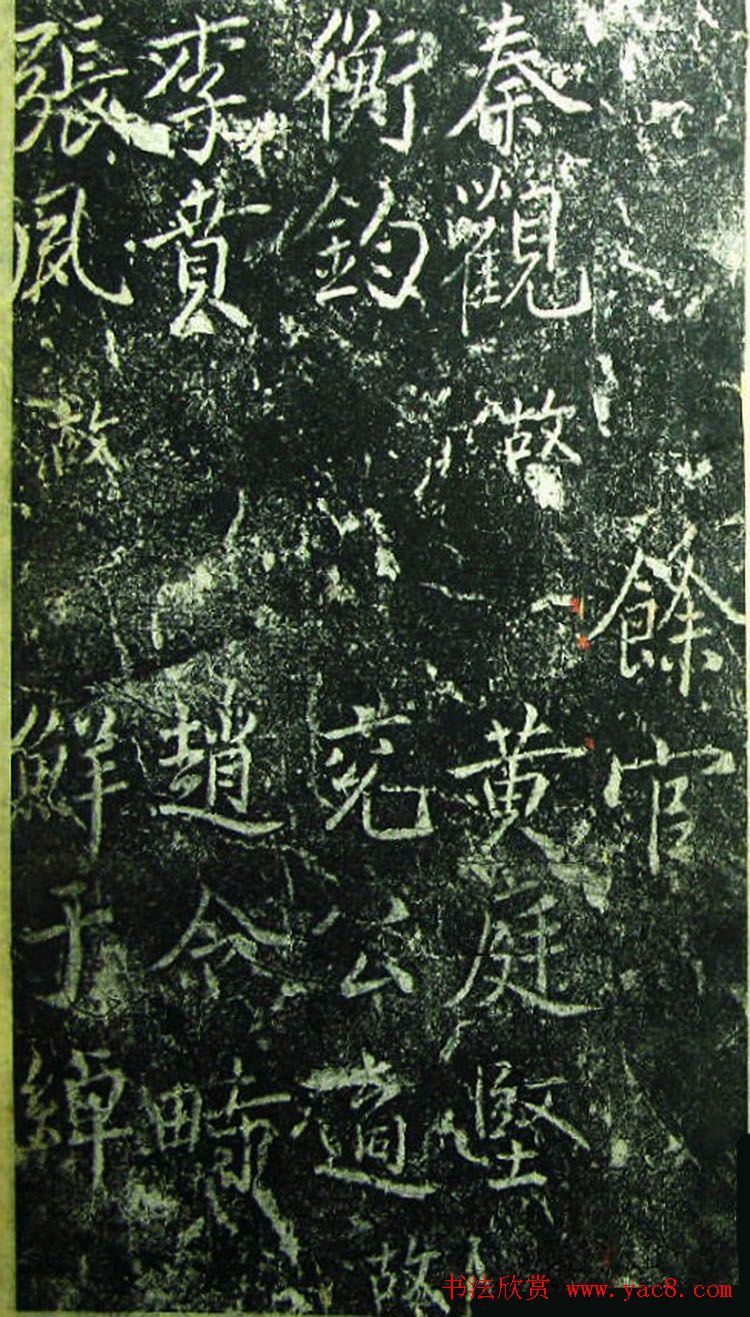 餘官
秦觀故 黄庭堅
衡鈞 兖公適故
李賁 趙令畤
張夙故 鮮于綽
书法欣赏 www.yac8.com